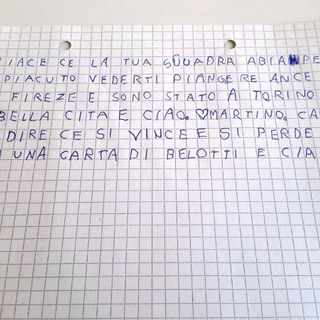 IACE CE LA TUA SQUADRA ABIA PE
PIACUTO VEDERTI PIANGERE ANCE
FIREZE E SONO STATO A TORINO
BELLA CITA E CIAO. ♡MARTINO. CA
DIRE CE SI VINCE E SI PERDE
UNA CARTA DI BELOTTI E CIA